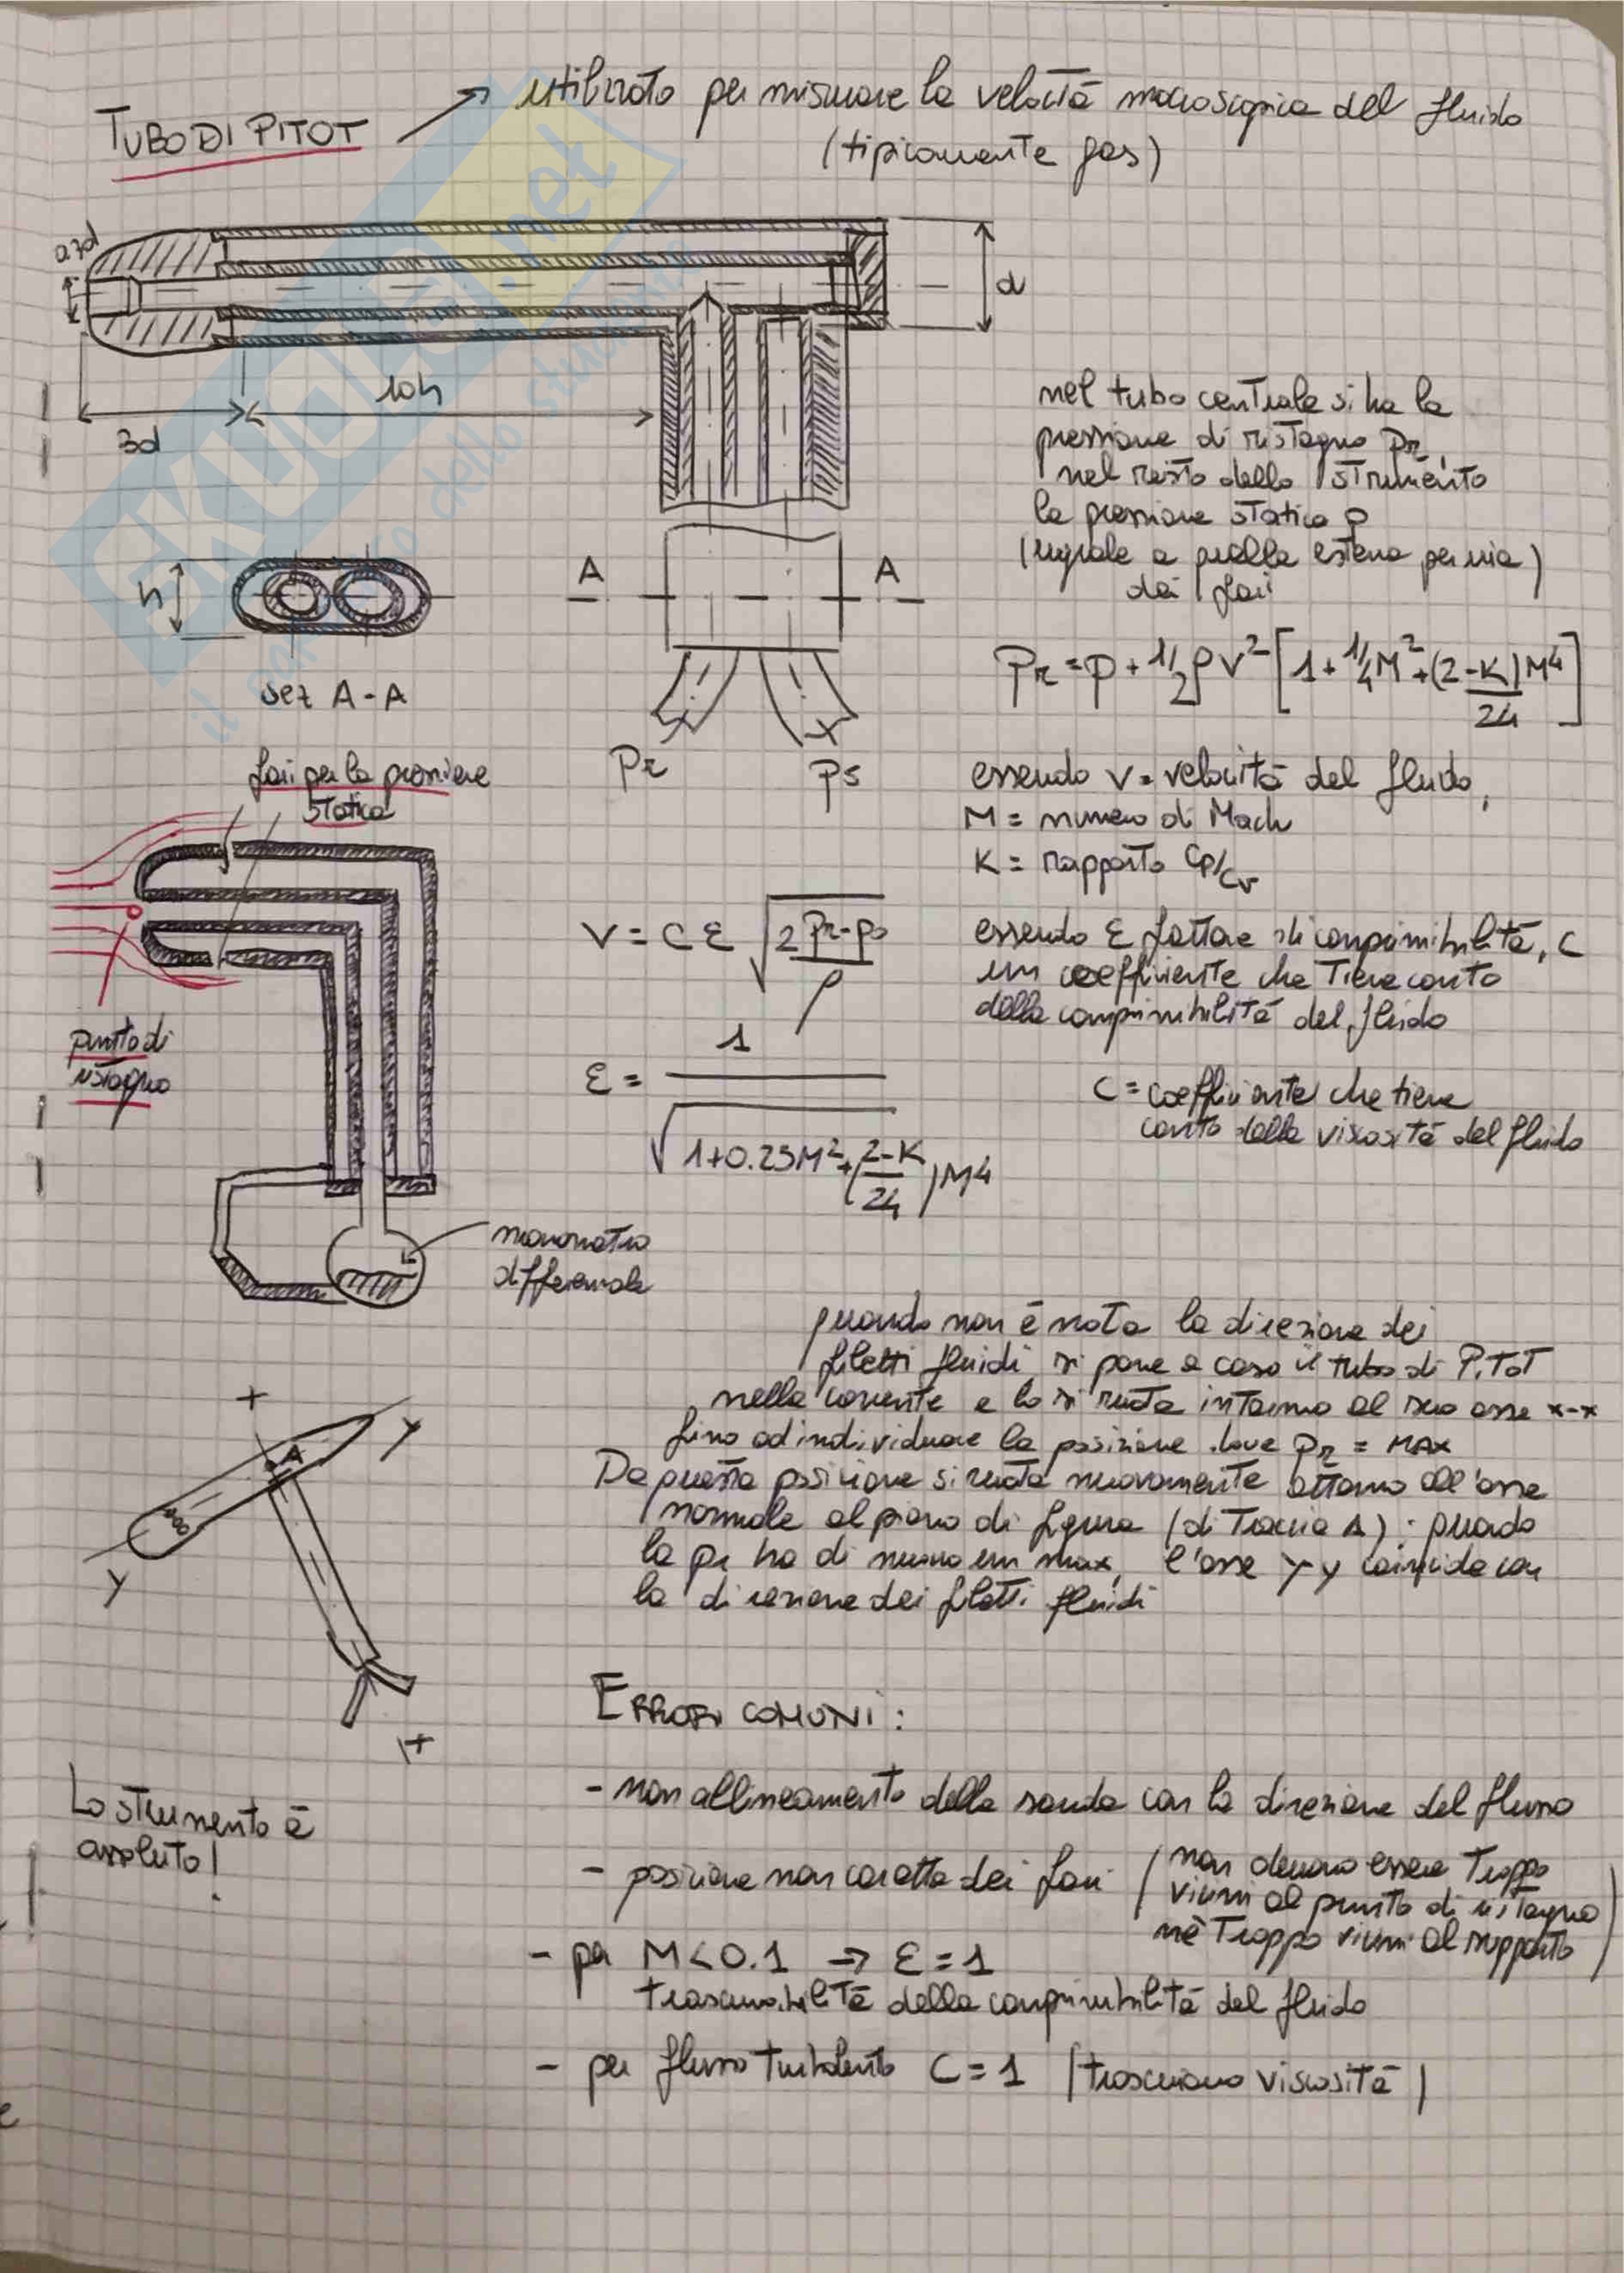 TUBO DI PITOT → utilizzato per misurare la velocità macroscopica del fluido
(tipicamente gas)
d
10h
3d
nel tubo centrale si ha la
pressione di ristagno Pr,
nel resto dello strumento
la pressione statica p
(uguale a quella esterna per via)
dei fori
h
A
A
sez A-A
Pr = p + 1/2 ρ V² [1 + 1/4 M² + (2-K)/24 M⁴]
Pr
Ps
fori per la pressione
statica
essendo V = velocità del fluido,
M = numero di Mach
K = rapporto Cp/Cv
V = C ε √(2 (Pr-Po)/ρ)
essendo ε fattore di comprimibilità, C
un coefficiente che tiene conto
della comprimibilità del fluido
punto di
ristagno
ε = 1/√(1+0.25M²+((2-K)/24)M⁴)
C = coefficiente che tiene
conto della viscosità del fluido
manometro
differenziale
quando non è nota la direzione dei
filetti fluidi, si pone a caso il tubo di PiTOT
nella corrente e lo si ruota intorno al suo asse x-x
fino ad individuare la posizione dove Pr = MAX
Da questa posizione si ruota nuovamente attorno all'asse
normale al piano di figura (di traccia A): quando
la pr ha di nuovo un max, l'asse y y coincide con
la direzione dei filetti fluidi
A
y
y
ERRORI COMUNI:
- non allineamento della sonda con la direzione del flusso
- posizione non corretta dei fori (non devono essere troppo
vicini al punto di ristagno
nè troppo vicini al supporto)
Lo strumento è
assoluto!
- per M<0.1 → ε = 1
trascurabilità della comprimibilità del fluido
- per flusso turbolento C = 1 (trascuriamo viscosità)
SKUOLA.net
il paradiso dello studente